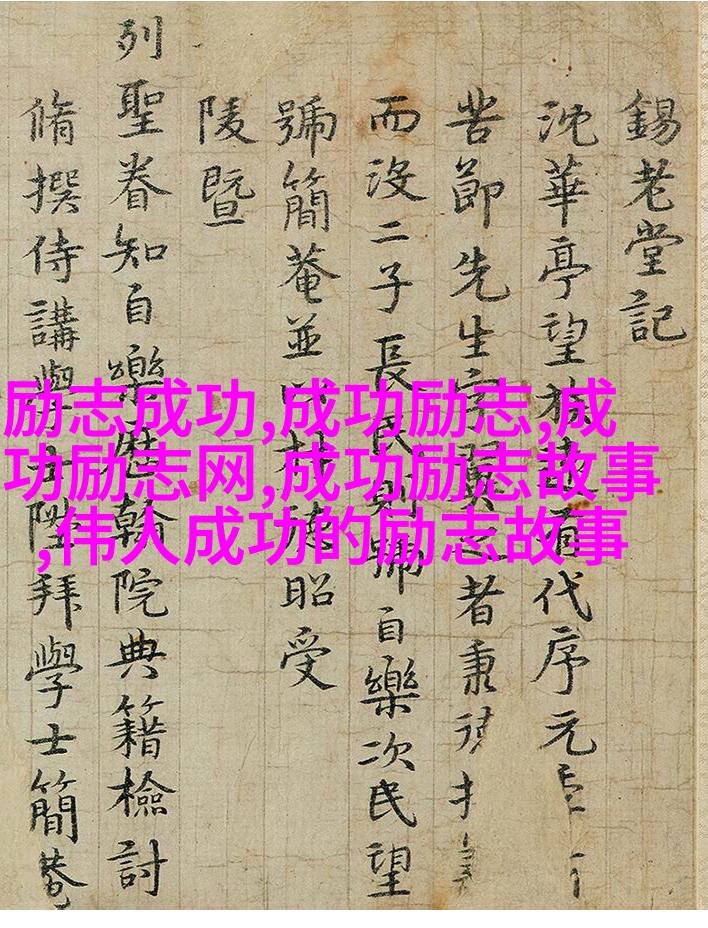 錫老堂記
沈華亭望族故有代序元
苦節先生字翼之者秉
而沒二子長民則號自樂次民望
號簡菴並以材德昭受
陵暨
列聖眷知自樂歷翰院典籍檢討
脩撰侍講學士陞拜學士簡菴
励志成功,成功励志,成
功励志网,成功励志故事
,伟人成功的励志故事